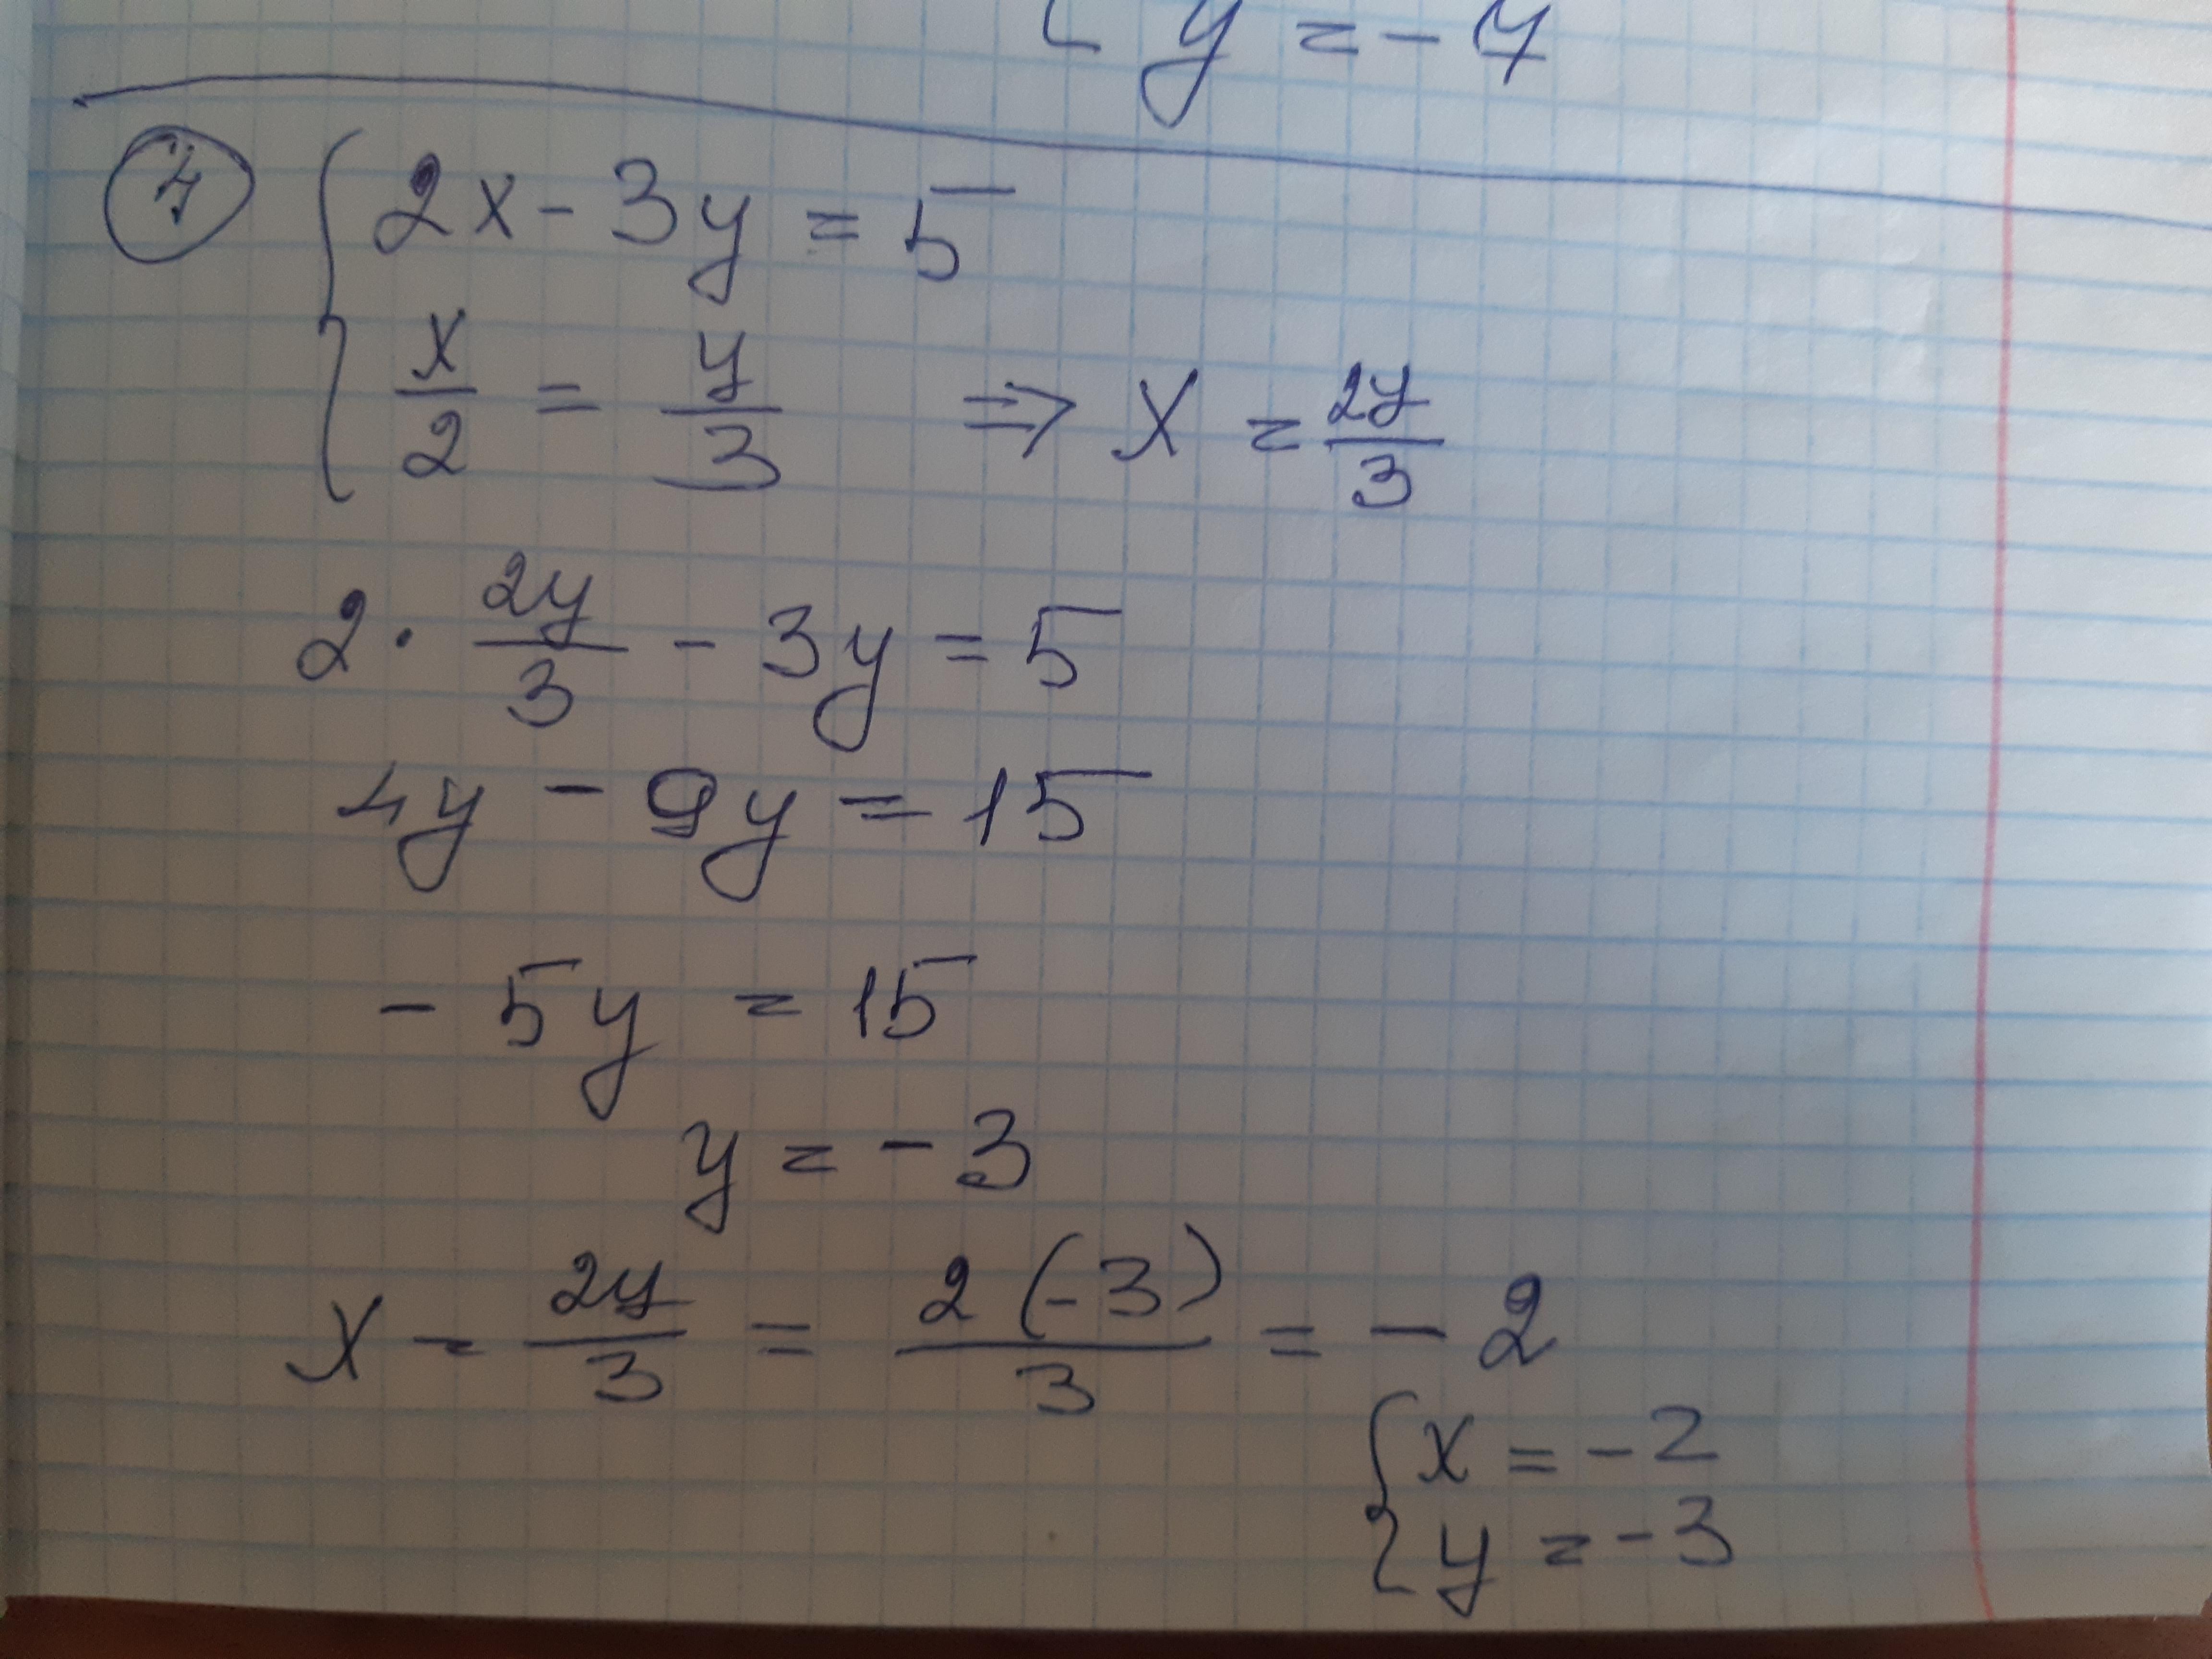 { y = - 7
④ { 2x - 3y = 5
x/2 = y/3 ⇒ x = 2y/3
2 · 2y/3 - 3y = 5
4y - 9y = 15
- 5y = 15
y = - 3
x = 2y/3 = 2 (-3)/3 = - 2
{ x = - 2
y = - 3